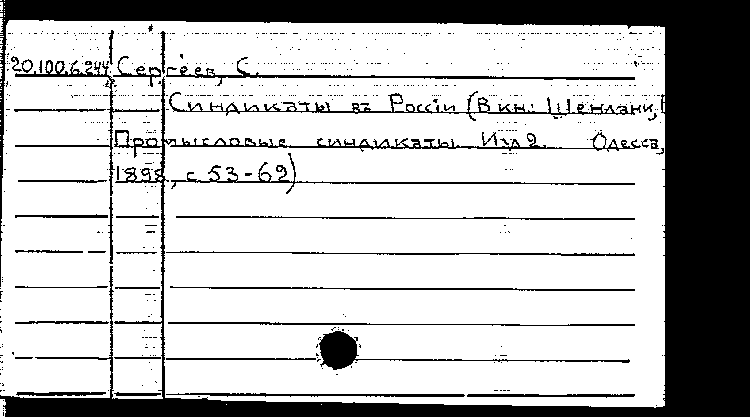 20.100.6.244 Сергѣев, С.
Синдикаты въ Россiи (В кн: Шенланк,
Промысловые синдикаты Изд 2. Одесса,
1898, с 53-62)